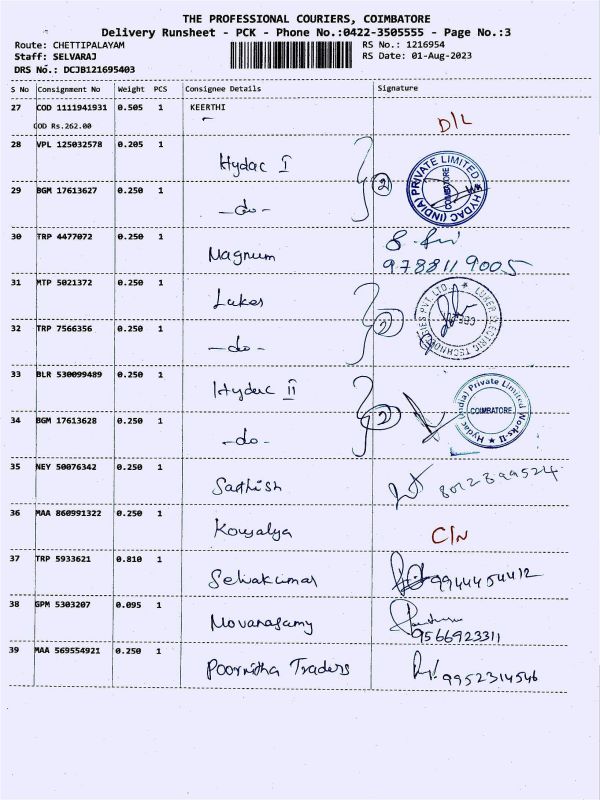 THE PROFESSIONAL COURIERS, COIMBATORE
Delivery Runsheet - PCK - Phone No.:0422-3505555 - Page No.:3
Route: CHETTIPALAYAM RS No.: 1216954
Staff: SELVARAJ RS Date: 01-Aug-2023
DRS No.: DCJB121695403
S No Consignment No Weight PCS Consignee Details Signature
27 COD 1111941931 0.505 1 KEERTHI
COD Rs.262.00 D/L
28 VPL 125032578 0.205 1 Hydac I
2
HYDAC (INDIA) PRIVATE LIMITED
COIMBATORE
29 BGM 17613627 0.250 1 -do-
30 TRP 4477072 0.250 1 Magnum
9788119005
31 MTP 5021372 0.250 1 Luker
2
LUKER ELECTRIC TECHNOLOGIES PVT. LTD.
32 TRP 7566356 0.250 1 -do-
33 BLR 530099489 0.250 1 Hydac II
2
Hydac (India) Private Limited Works-II
COIMBATORE
34 BGM 17613628 0.250 1 -do-
35 NEY 50076342 0.250 1 Sathish
8012899524
36 MAA 860991322 0.250 1 Kowsalya C/N
37 TRP 5933621 0.810 1 Selvakumar
9944454412
38 GPM 5303207 0.095 1 Movanasamy
9566923311
39 MAA 569554921 0.250 1 Poornitha Traders
9952314546